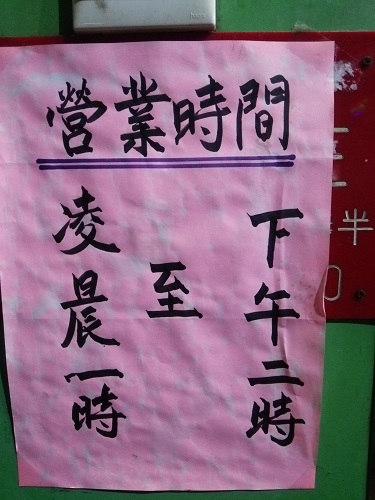 營業時間
下午二時
至
凌晨一時
半